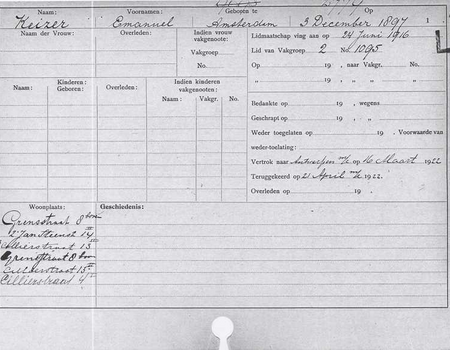 Naam: Voornamen: Geboren te Op
Keizer Emanuel Amsterdam 3 December 1897 1
Naam der Vrouw: Overleden: Indien vrouw vakgenoote: Lidmaatschap ving aan op 24 Juni 1916
Vakgroep Lid van Vakgroep 2 No. 1095
No. Op 19 , naar Vakgr. No.
Kinderen: Indien kinderen vakgenooten: „ „ 19 , „ „ „
Naam: Geboren: Overleden: Naam: Vakgr. No.
Bedankte op 19 , wegens
Geschrapt op 19 , „
Weder toegelaten op 19 . Voorwaarde van
weder-toelating:
Vertrok naar Antwerpen op 16 Maart 1922
Teruggekeerd op 21 April 1922.
Overleden op 19 .
Woonplaats: Geschiedenis:
Grensstraat 8
2e Jan Steenstr 14
Cillierstraat 15
Grensstraat 8
Cillierstraat 15
Cillierstraat 4